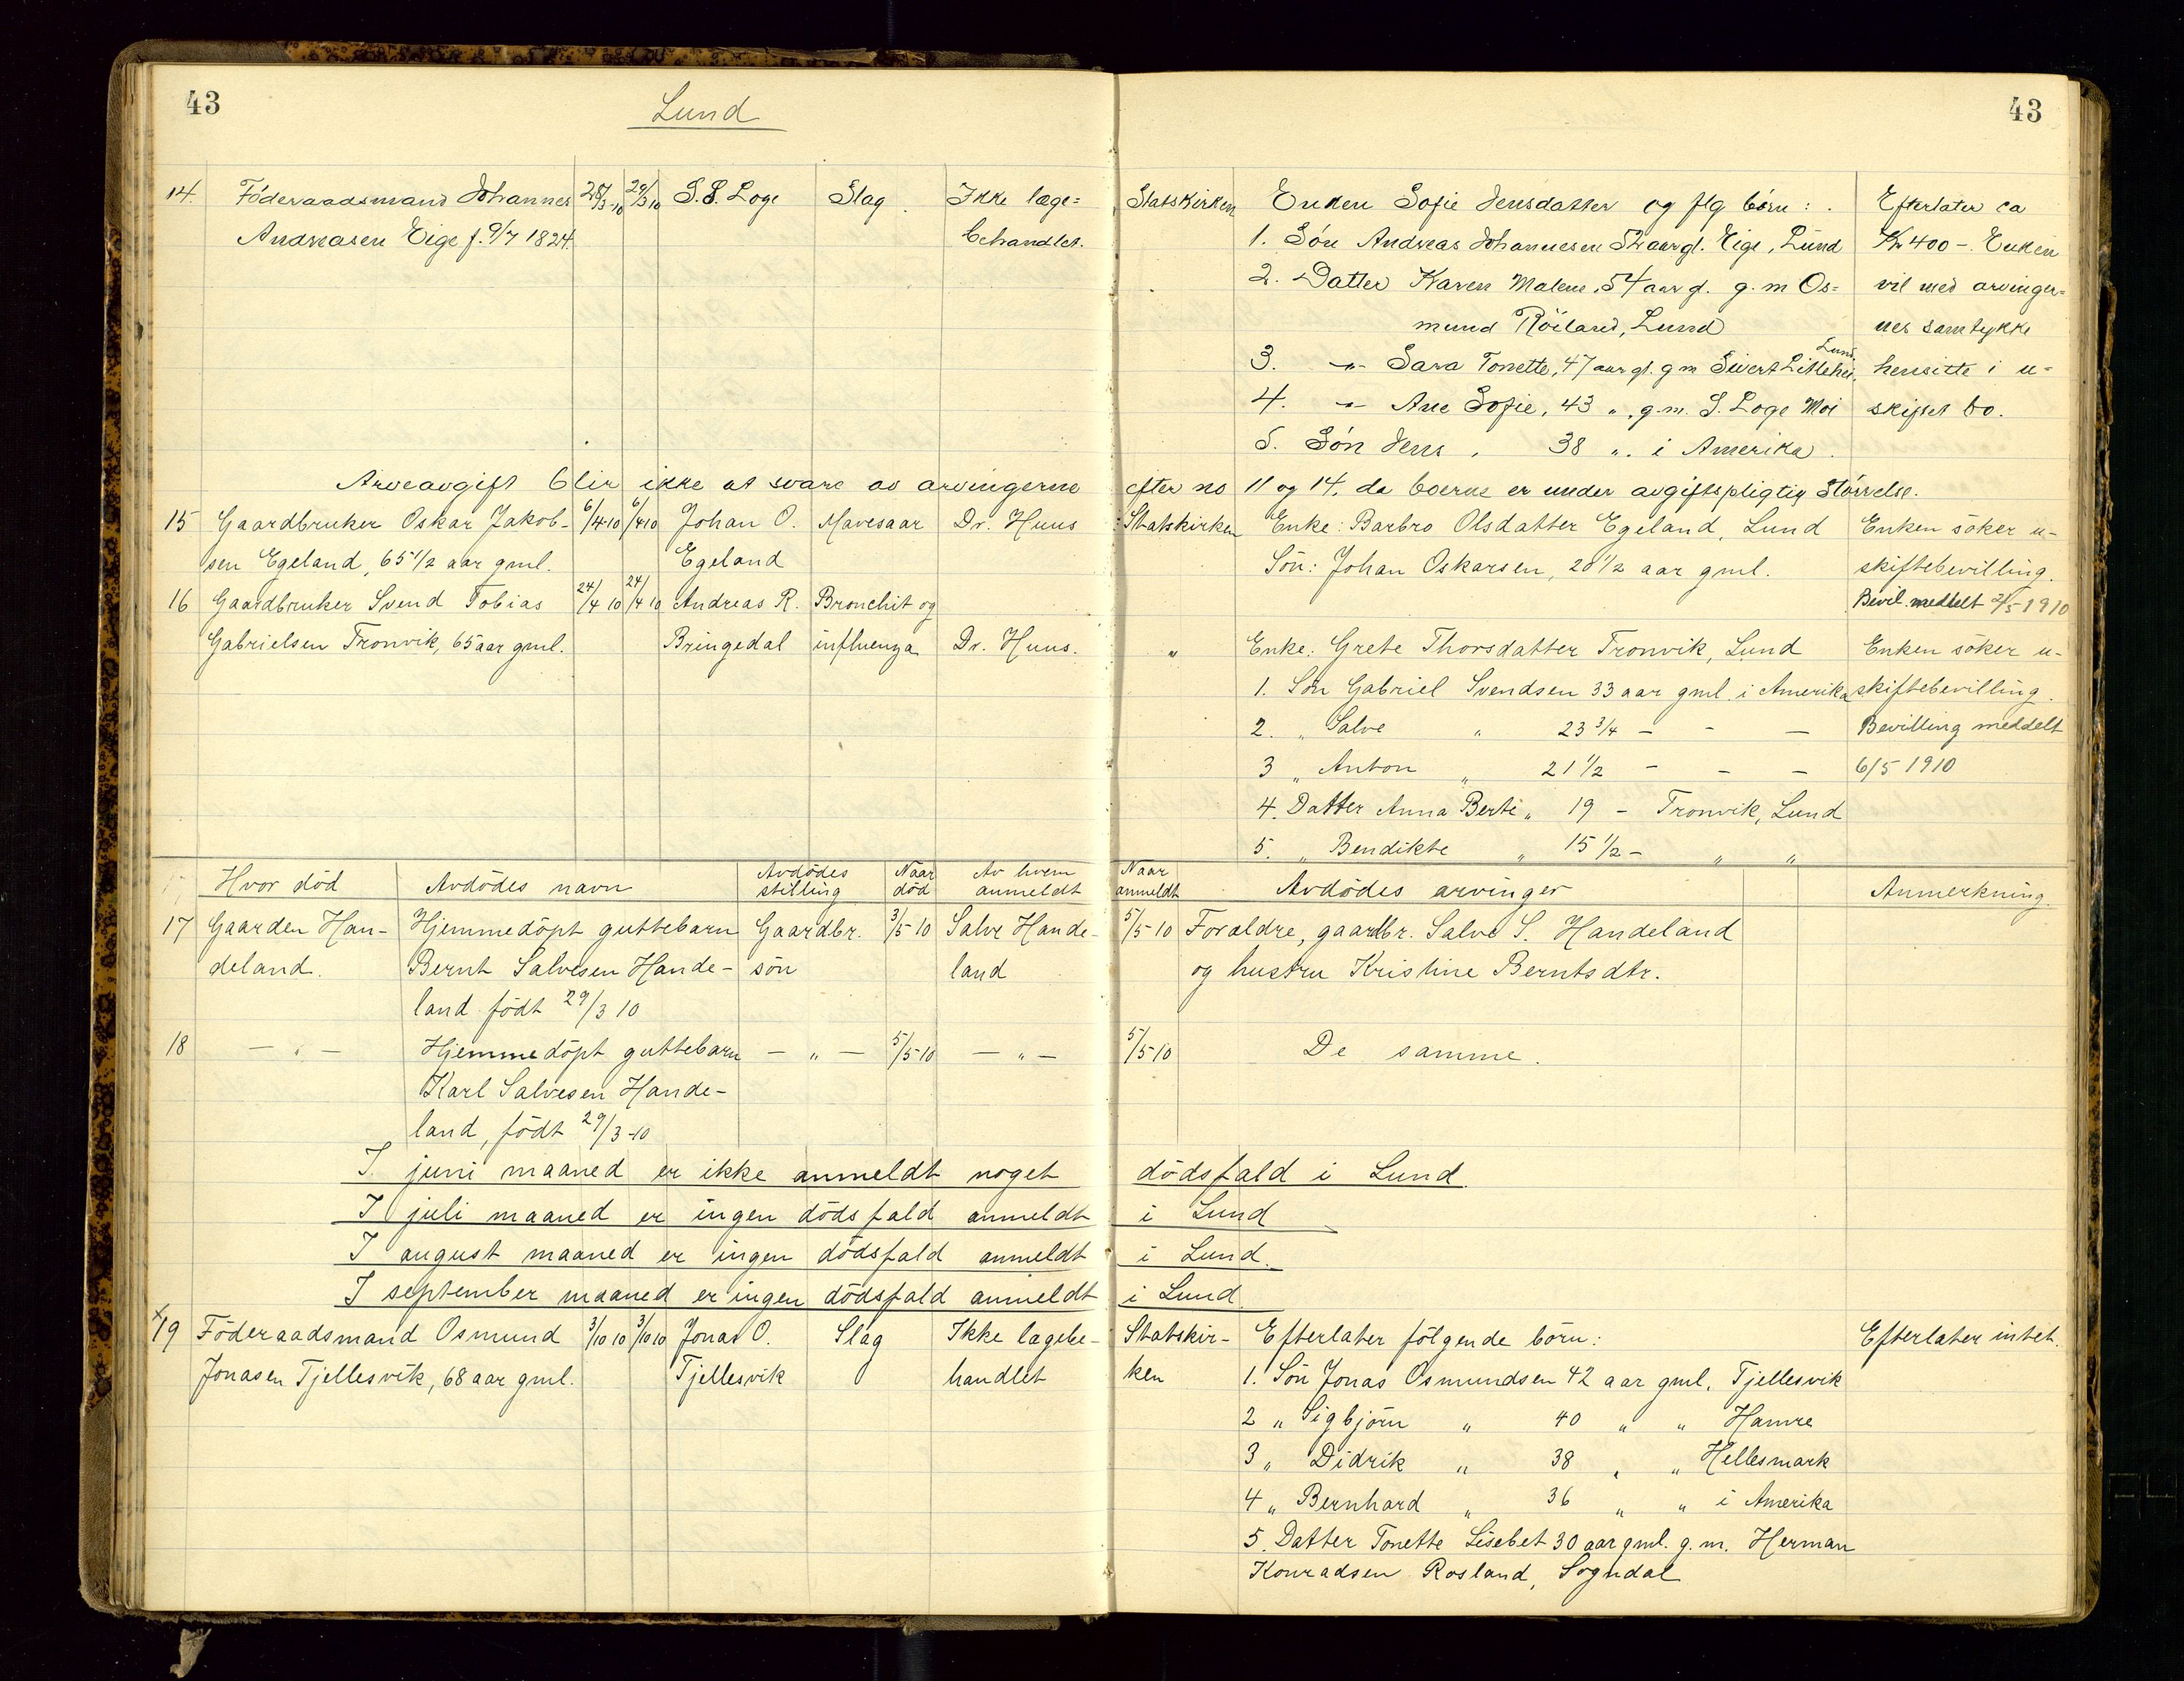 43
Lund
14. Föderaadsmand Johannes 28/3 10 29/3 10 S. S. Loge Slag. Ikke læge=
Andreasen Eige f. 9/7 1824. behandlet.
15 Gaardbruker Oskar Jakob- 6/4 10 6/4 10 Johan O. Mavesaar Dr. Huus
sen Egeland, 65 1/2 aar gml. Egeland
16 Gaardbruker Svend Tobias 24/4 10 24/4 10 Andreas R. Bronchit og
Gabrielsen Tronvik, 65 aar gml. Bringedal influenza Dr. Huus.
Hvor död Avdödes navn Avdödes stilling Naar död Av hvem anmeldt
17 Gaarden Han- Hjemmedöpt guttebarn Gaardbr. 3/5 10 Salve Hande-
deland. Bernt Salvesen Hande- sön land
land födt 29/3 10
18 — „ — Hjemmedöpt guttebarn — „ — 5/5 10 — „ —
Karl Salvesen Hande-
land, födt 29/3 -10
19 Föderaadsmand Osmund 3/10 10 3/10 10 Jonas O. Slag Ikke lægebe-
Jonasen Tjellesvik, 68 aar gml. Tjellesvik handlet
43
Statskirken Enken Sofie Jensdatter og flg börn: Efterlater ca
1. Sön Andreas Johannesen 52 aar gl. Eige, Lund Kr 400 -. Enken
2. Datter Karen Malene, 54 aar g. g. m Os= vil med arvinger=
mund Röiland, Lund nes samtykke
3. -„- Sara Tonette, 47 aar gl. g m Sivert Littehei, Lund. hensitte i u-
4. -„- Ane Sofie, 43 „ g. m. S. Loge Moi skiftet bo.
5. Sön Jens, 38 „. i Amerika.
Arveavgift blir ikke at svare av arvingerne efter no 11 og 14. da boerne er under avgiftspligtig Störrelse.
Statskirken Enke: Barbro Olsdatter Egeland, Lund Enken söker u-
Sön: Johan Oskarsen, 20 1/2 aar gml. skiftebevilling.
Bevil. meddelt 2/5 1910
„ Enke: Grete Thorsdatter Tronvik, Lund Enken söker u-
1. Sön Gabriel Svendsen 33 aar gml i Amerika skiftebevilling.
2. „ Salve „ 23 3/4 - - — Bevilling meddelt
3 „ Anton „ 21 1/2 - - — 6/5 1910
4. Datter Anna Berte „ 19 - Tronvik, Lund
5. „ Bendikte „ 15 1/2 - „ „
Naar anmeldt Avdödes arvinger Anmerkning.
5/5 10 Foraldre, gaardbr. Salve S. Handeland
og hustru Kristine Berntsdtr.
5/5 10 De samme.
I juni maaned er ikke anmeldt noget dödsfald i Lund.
I juli maaned er ingen dödsfald anmeldt i Lund
I august maaned er ingen dödsfald anmeldt i Lund.
I september maaned er ingen dödsfald anmeldt i Lund.
Statskir- Efterlater fölgende börn: Efterlater intet.
ken 1. Sön Jonas Osmundsen 42 aar gml. Tjellesvik
2 „ Sigbjörn „ 40 „ „ Hamre
3 „ Didrik „ 38 „ „ Hellesmark
4 „ Bernhard „ 36 „ „ i Amerika
5. Datter Tonette Lisebet 30 aar gml. g. m. Herman
Konradsen Rosland, Sogndal